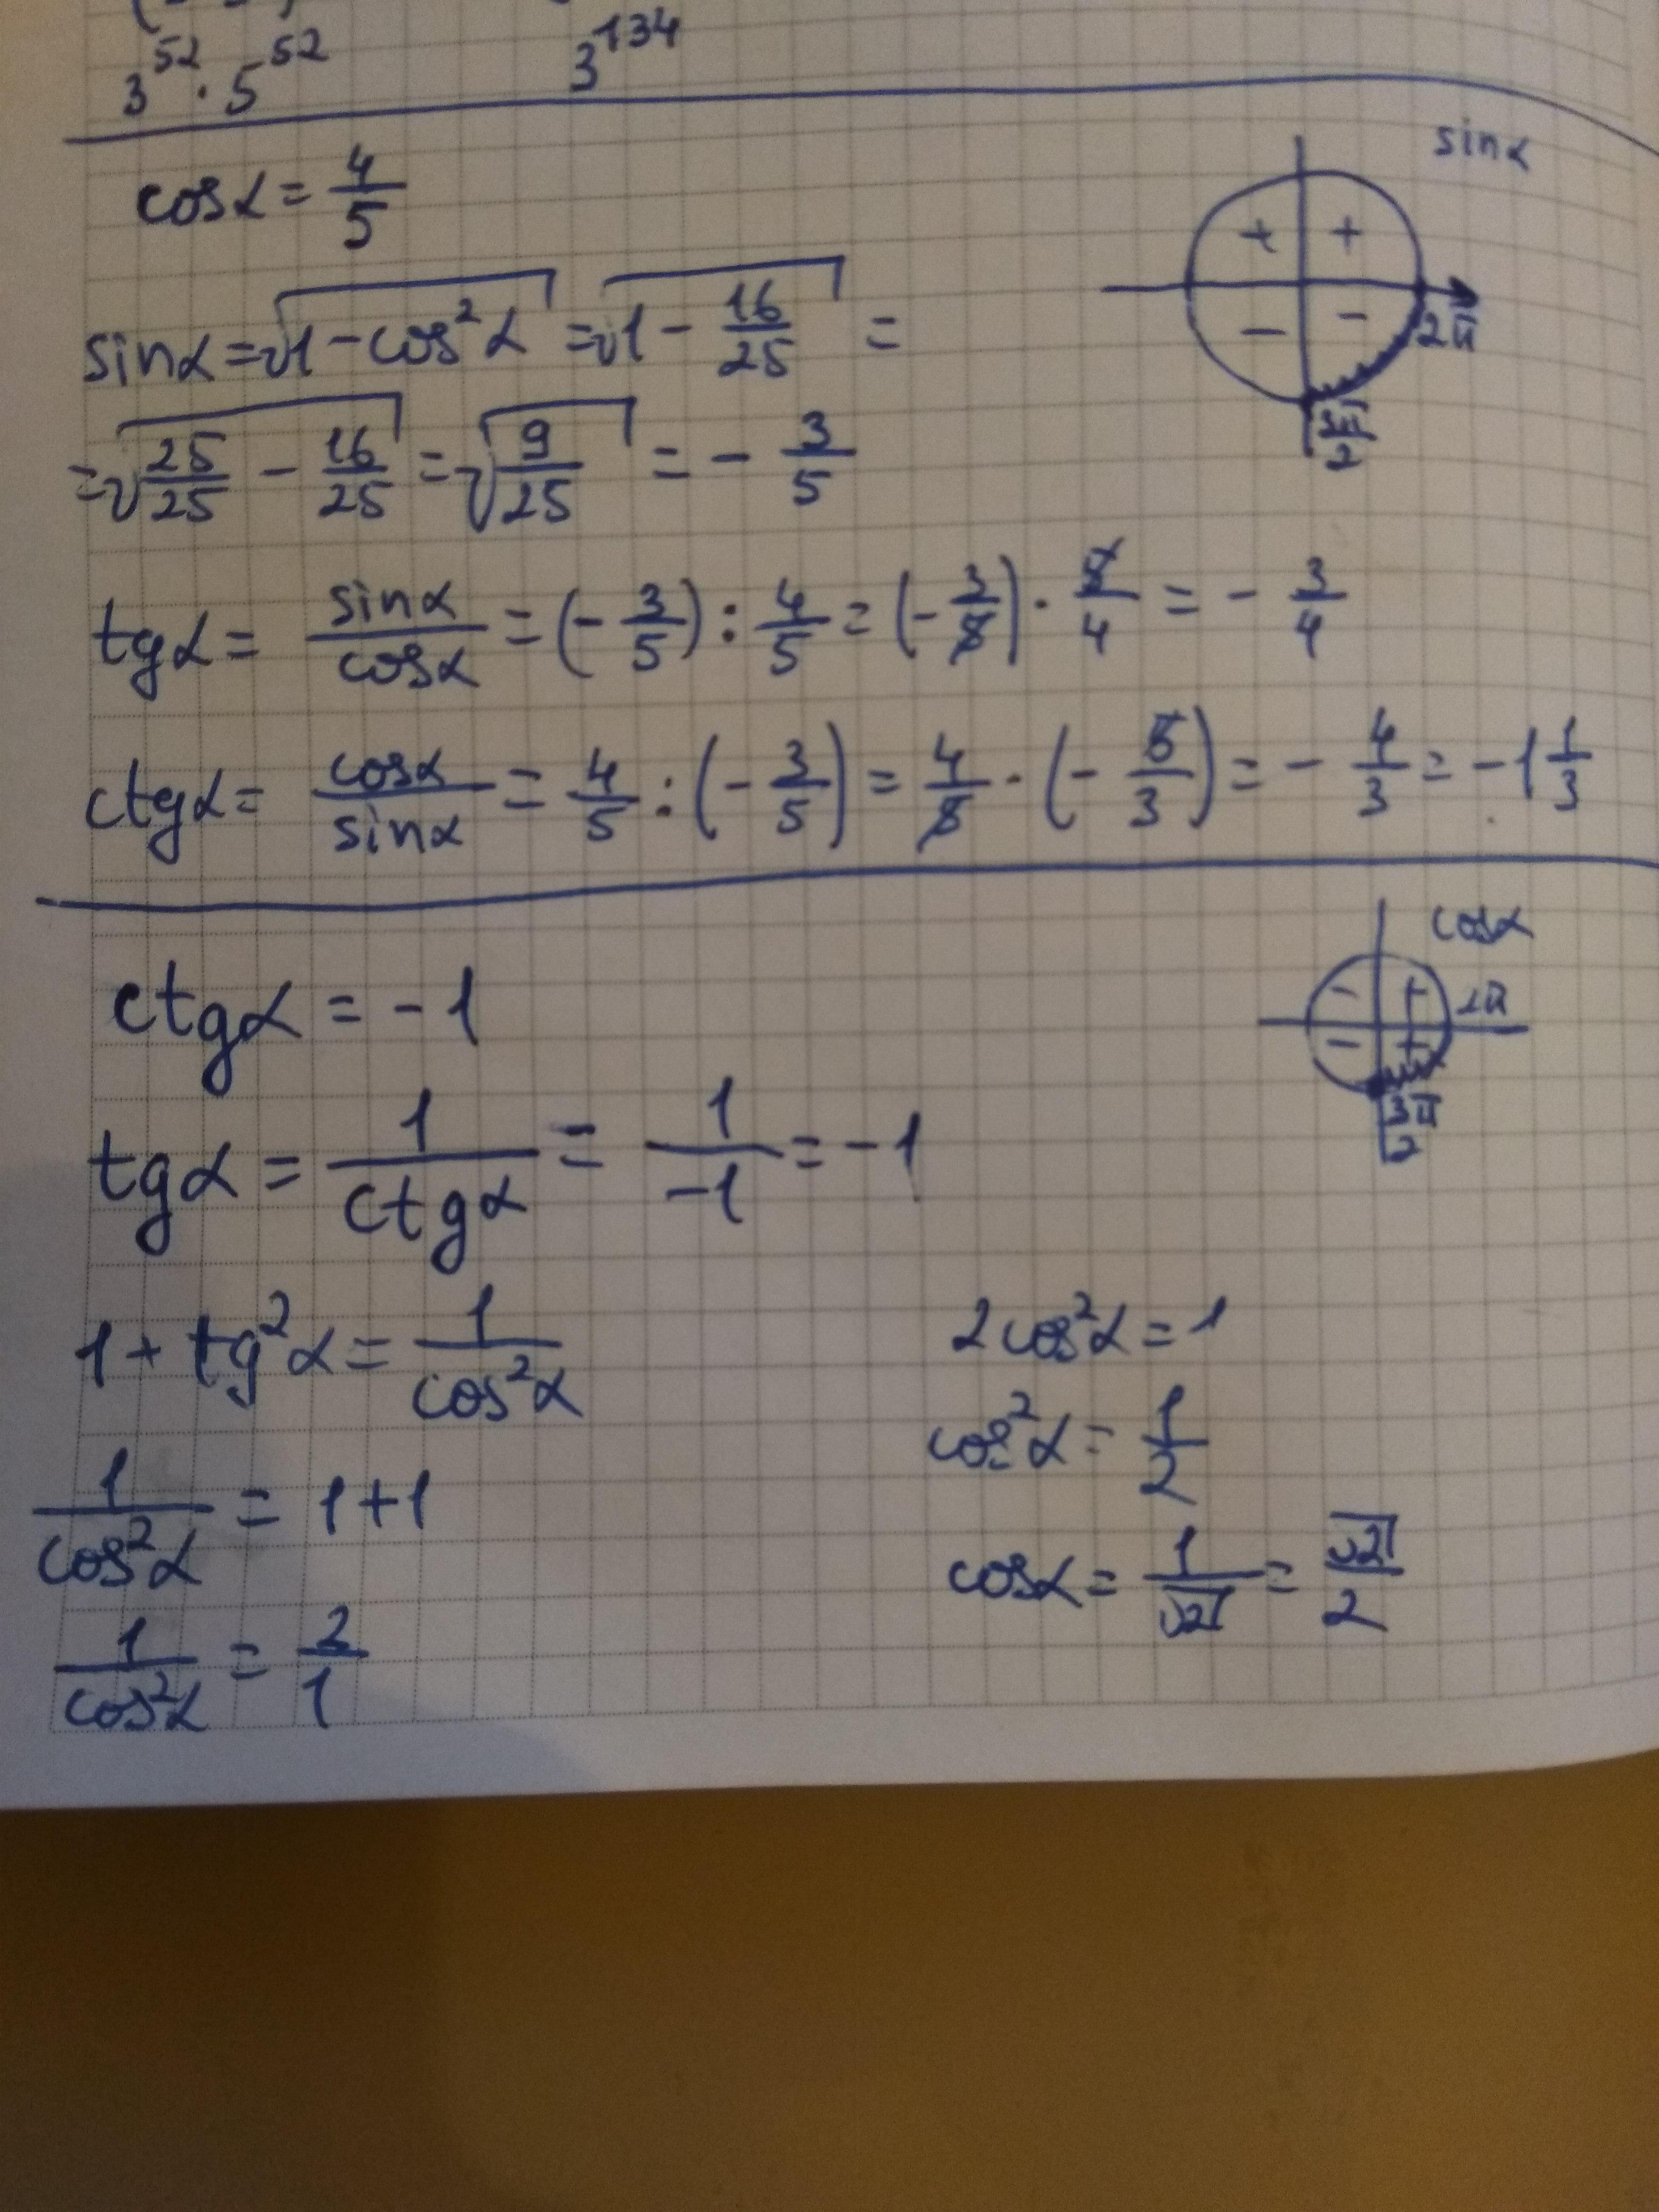 3^52 · 5^52     3^134
cosα = 4/5
sinα
sinα = √(1 - cos²α) = √(1 - 16/25) =
2π
= √(25/25 - 16/25) = √(9/25) = - 3/5
3π/2
tgα = sinα/cosα = (- 3/5) : 4/5 = (- 3/5) · 5/4 = - 3/4
ctgα = cosα/sinα = 4/5 : (- 3/5) = 4/5 · (- 5/3) = - 4/3 = -1 1/3
cosα
ctgα = -1
2π
3π/2
tgα = 1/ctgα = 1/-1 = -1
1 + tg²α = 1/cos²α
1/cos²α = 1+1
1/cos²α = 2/1
2cos²α = 1
cos²α = 1/2
cosα = 1/√2 = √2/2